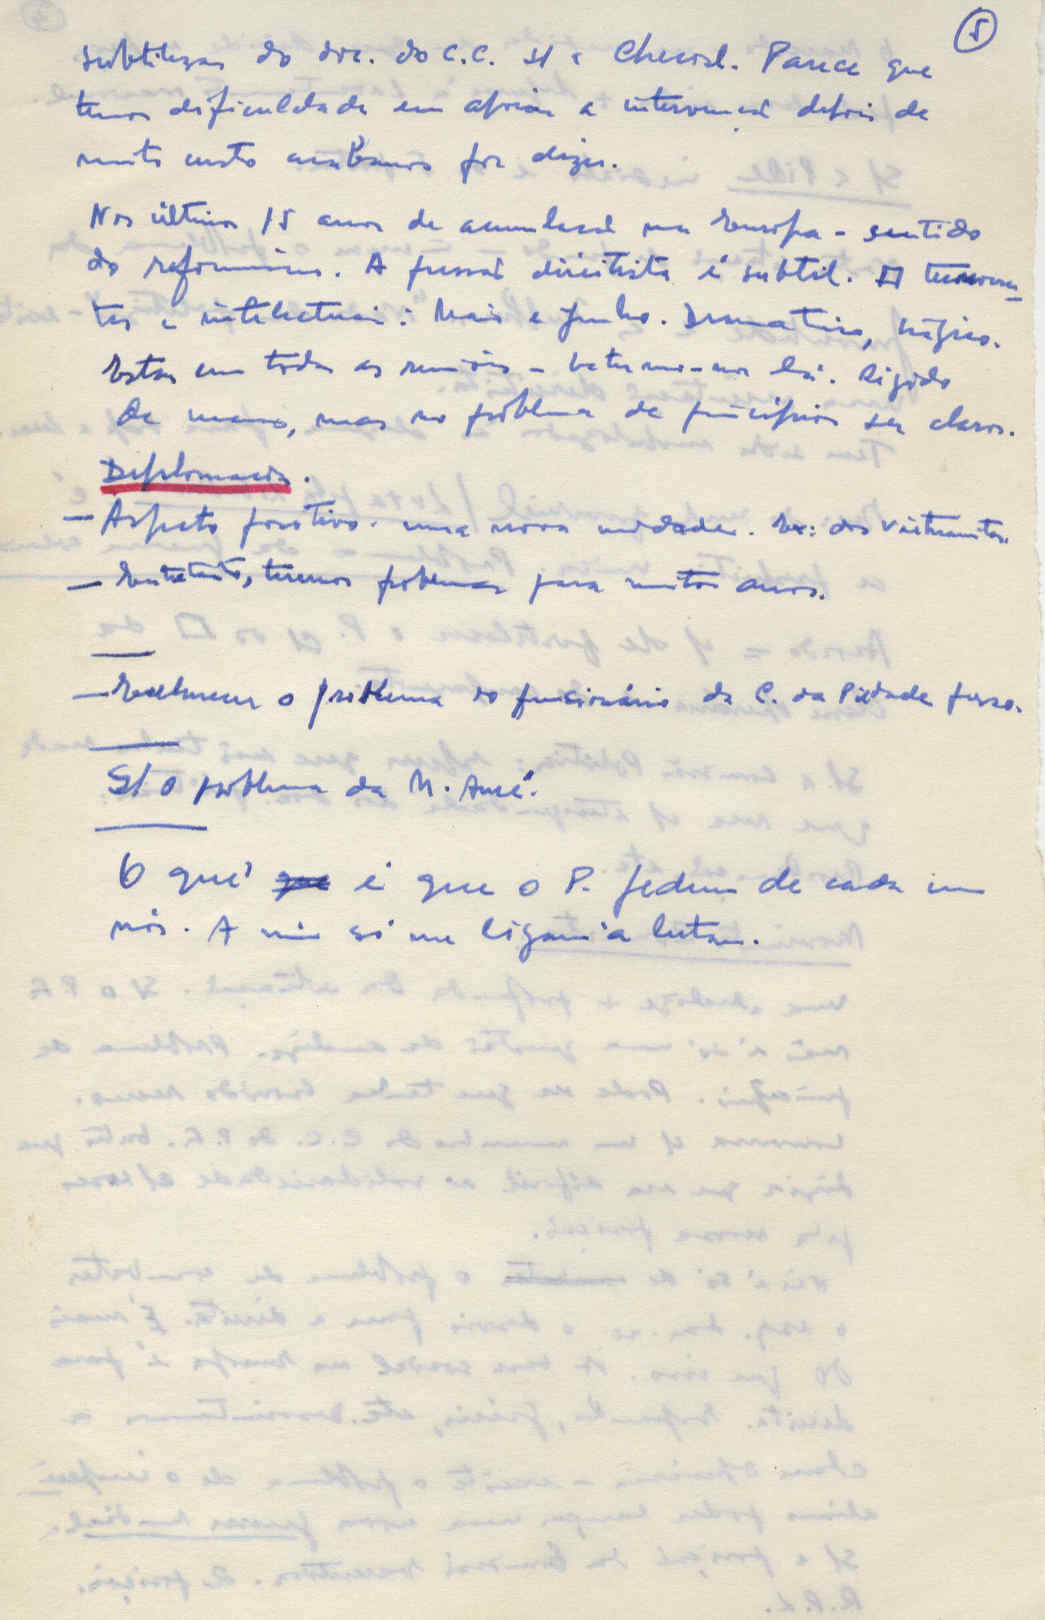 5
subtilezas do doc. do C.C. s/ a Checosl. Parece que
temos dificuldade em apoiar a intervenção depois de
muito custo acabamos por dizer.
Nos últimos 15 anos de acumulação na Europa - sentido
do reformismo. A pressão direitista é subtil.
tes e intelectuais: Maio e Junho. Dramatico, trágico.
Estar em todas as reuniões - batermo-nos lá. Rigido
de mano, mas no problema de principios ser claros.
Diplomacia.
- Aspecto positivo. uma nova unidade. Ex: dos Vietnamitas.
- Entretanto, temos problemas para muitos anos.
- o problema do funcionário da C. da Piedade preso.
S/ o problema da M. André.
O que é que o P. pedem de cada um
nós. A mim só me ligam à luta.